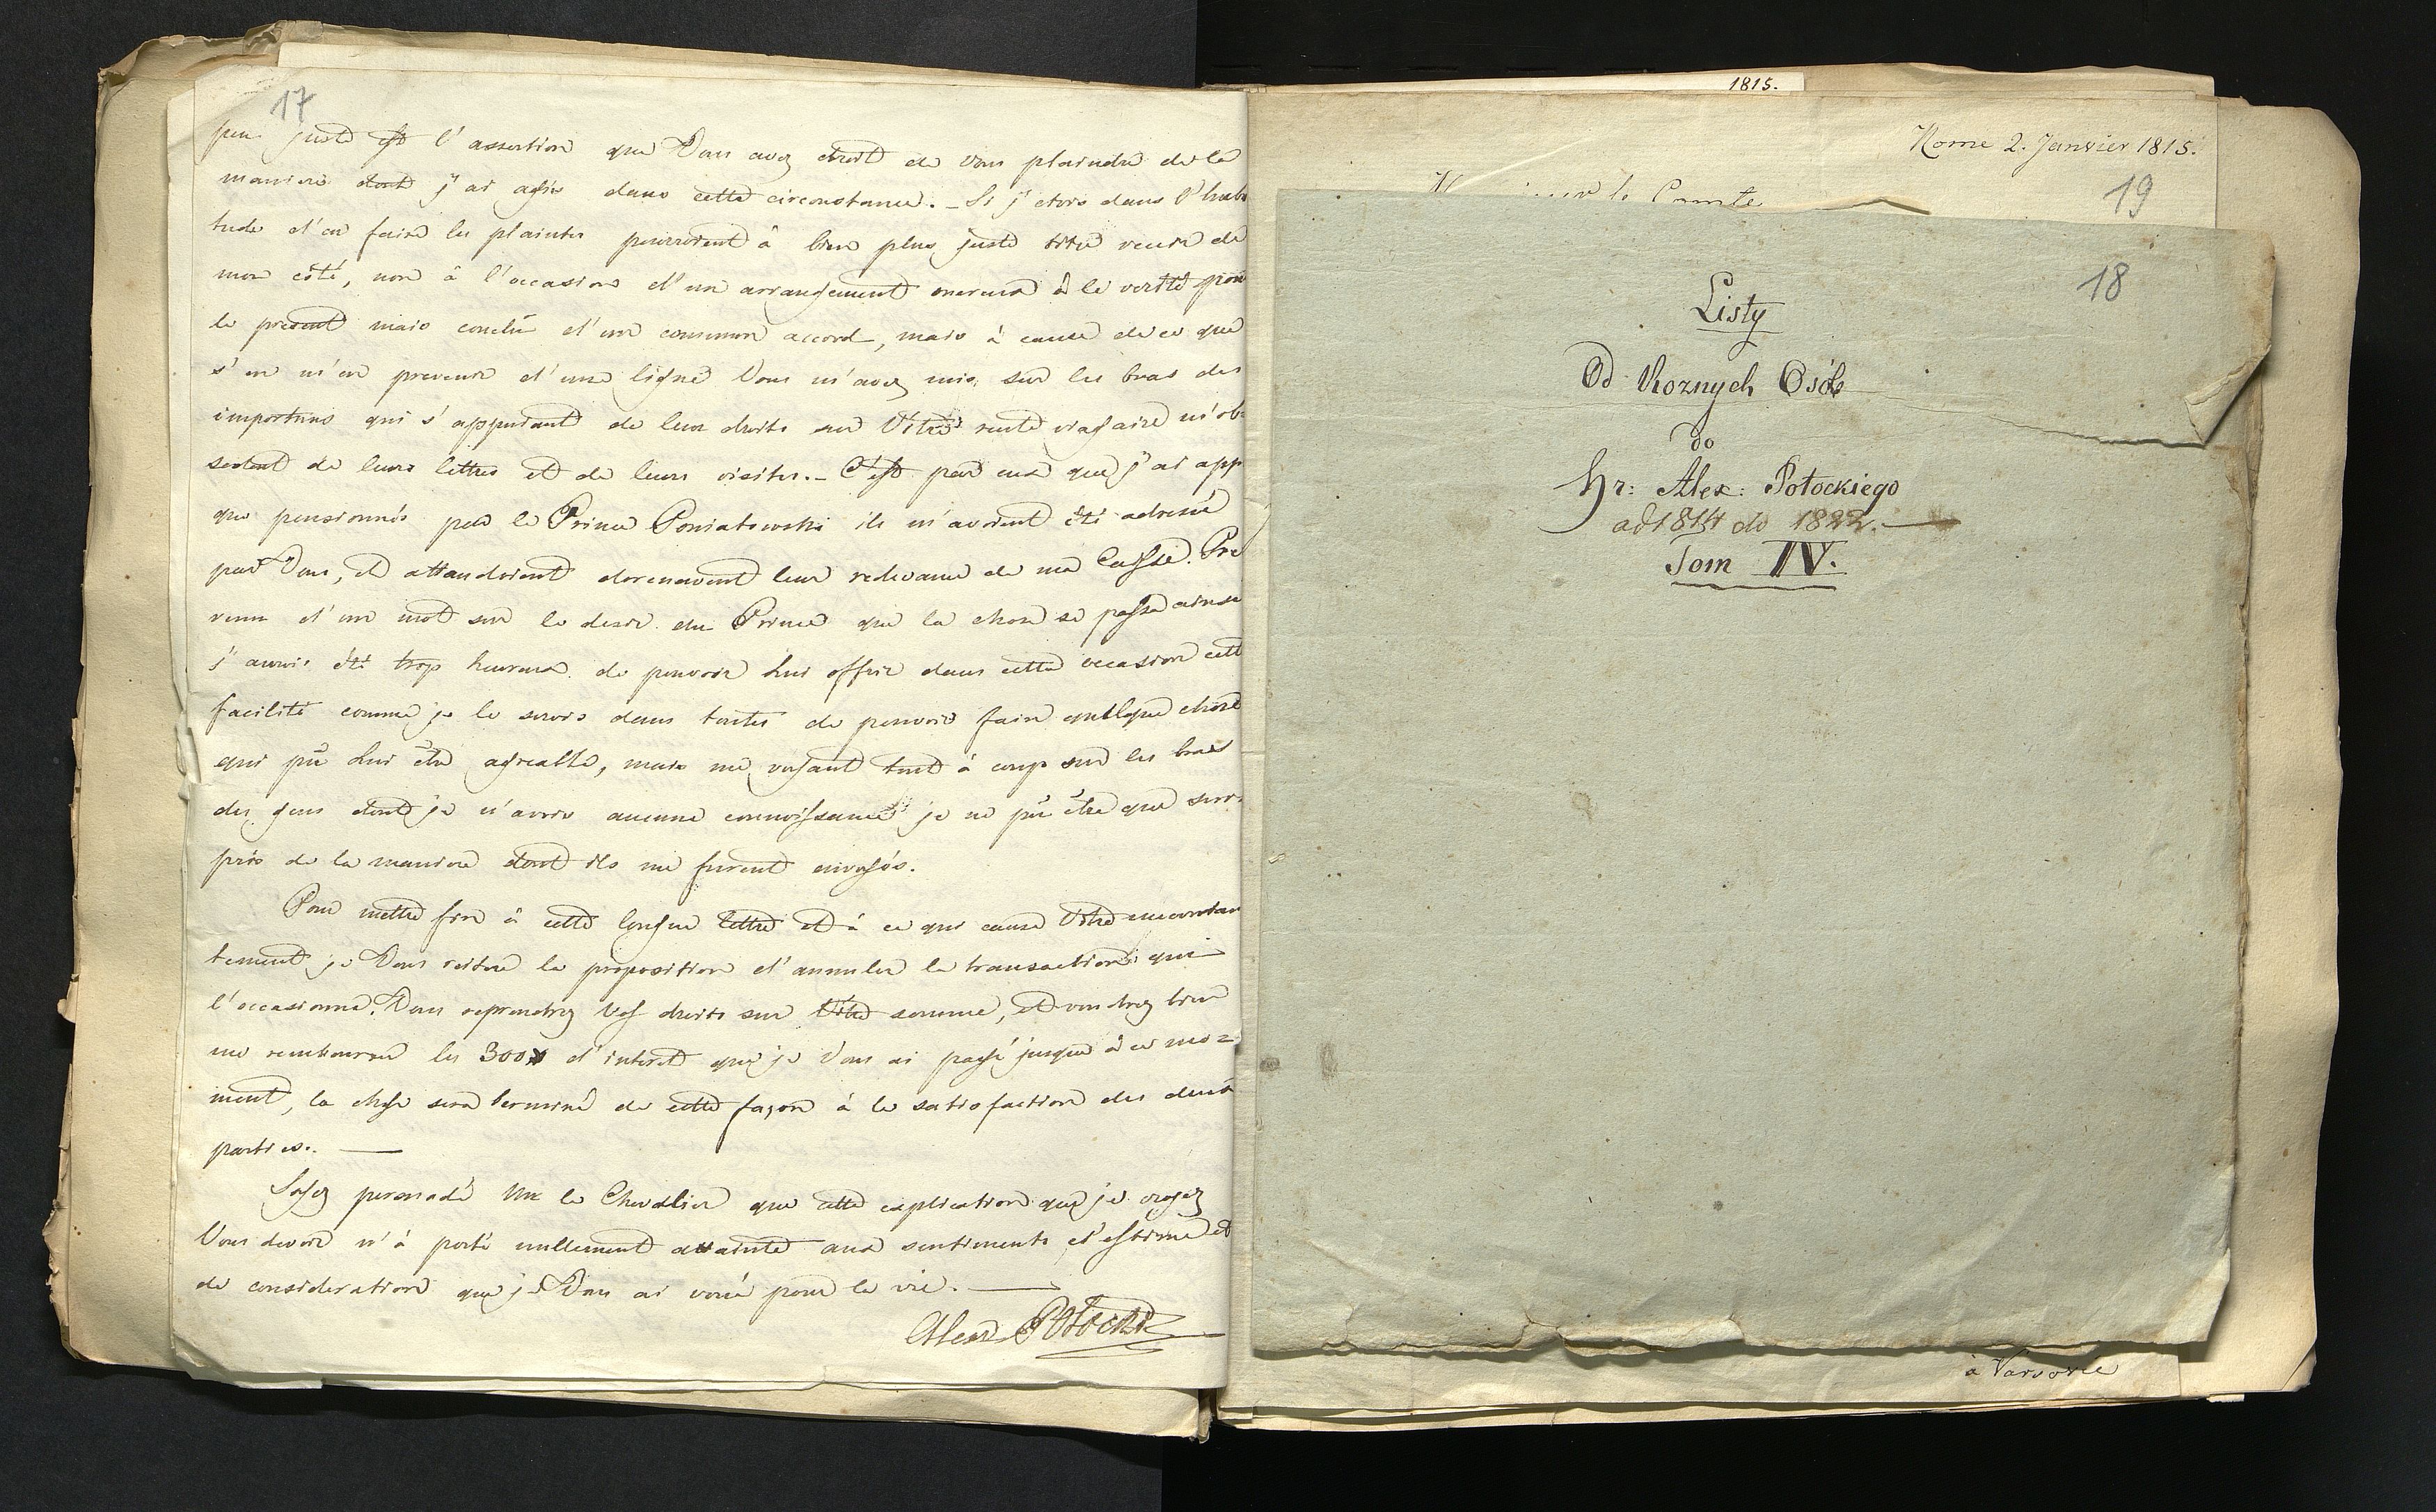 17
peu juste est l'assertion que Vous avez droit de vous plaindre de la
maniere dont j'ai agis dans cette circonstance. - Si j'etois dans l'habi
tude d'en faire les plaintes pourroient à bien plus juste titre venir de
mon côté, non à l'occasion d'un arrangement onereux à la verité pour
le present mais conclu d'un commun accord, mais à cause de ce que
s'en m'en prevenir d'une ligne Vous m'avez mis sur les bras des
importuns qui s'appuiant de leur droits sur Vôtre rente viagaire m'ob-
sedent de leurs lettres et de leurs visites. - C'est par eux que j'ai app
que pensionnés par le Prince Poniatowski ils m'avoient été adressé
par Vous, et attendoient dorenavent leur redevance de ma Caisse. Pre
venu d'un mot sur le desir du Prince que la chose se passe ainsi
j'aurois été trop heureux de pouvoir lui offrir dans cette occasion cett
facilité comme je le serois dans toutes de pouvoir faire quelque chose
qui pû lui être agreable, mais me voyant tout à coup sur les bras
des gens dont je n'avois aucune connoissance je ne pû être que sur-
pris de la maniere dont ils me furent envoyés.
Pour mettre fin à cette longue lettre et à ce qui cause Vôtre mecontan
tement je Vous reitere la proposition d'annuler la transaction qui
l'occasionne. Vous reprendrez Vos droits sur Vôtre somme, et voudrez bien
me rembourser les 300# d'interet que je Vous ai payé jusque à ce mo=
ment, la chose sera terminé de cette façon à la satisfaction des deux
parties. —
Soyez persuadé Mr le Chevalier que cette explication que je croyez
Vous devoir n'à porté nullement attainte aux sentiments d'estime et
de consideration que je Vous ai voué pour la vie. —
Alexd Potocki
1815.
Rome 2. Janvier 1815.
19
le Comte
18
Listy
Od Roznych Osób
do
Hr: Alex: Potockiego
od 1814 do 1822. —
Tom IV.
à Varsovie